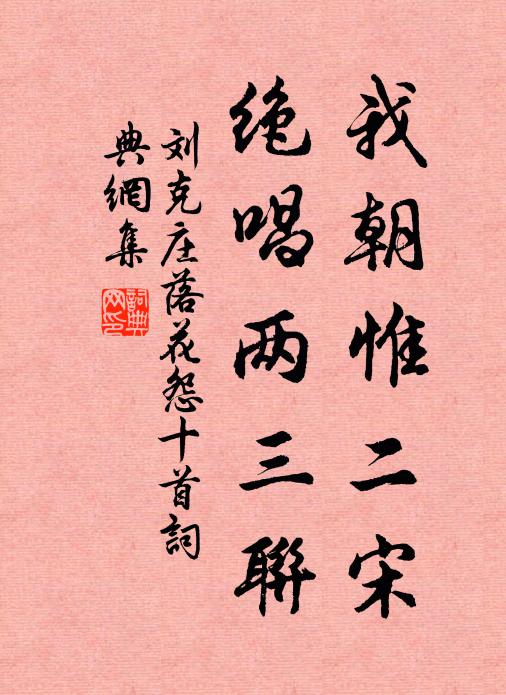 我朝惟二宋
绝唱两三联
刘克庄落花怨十首詞
典網集
詞典网印